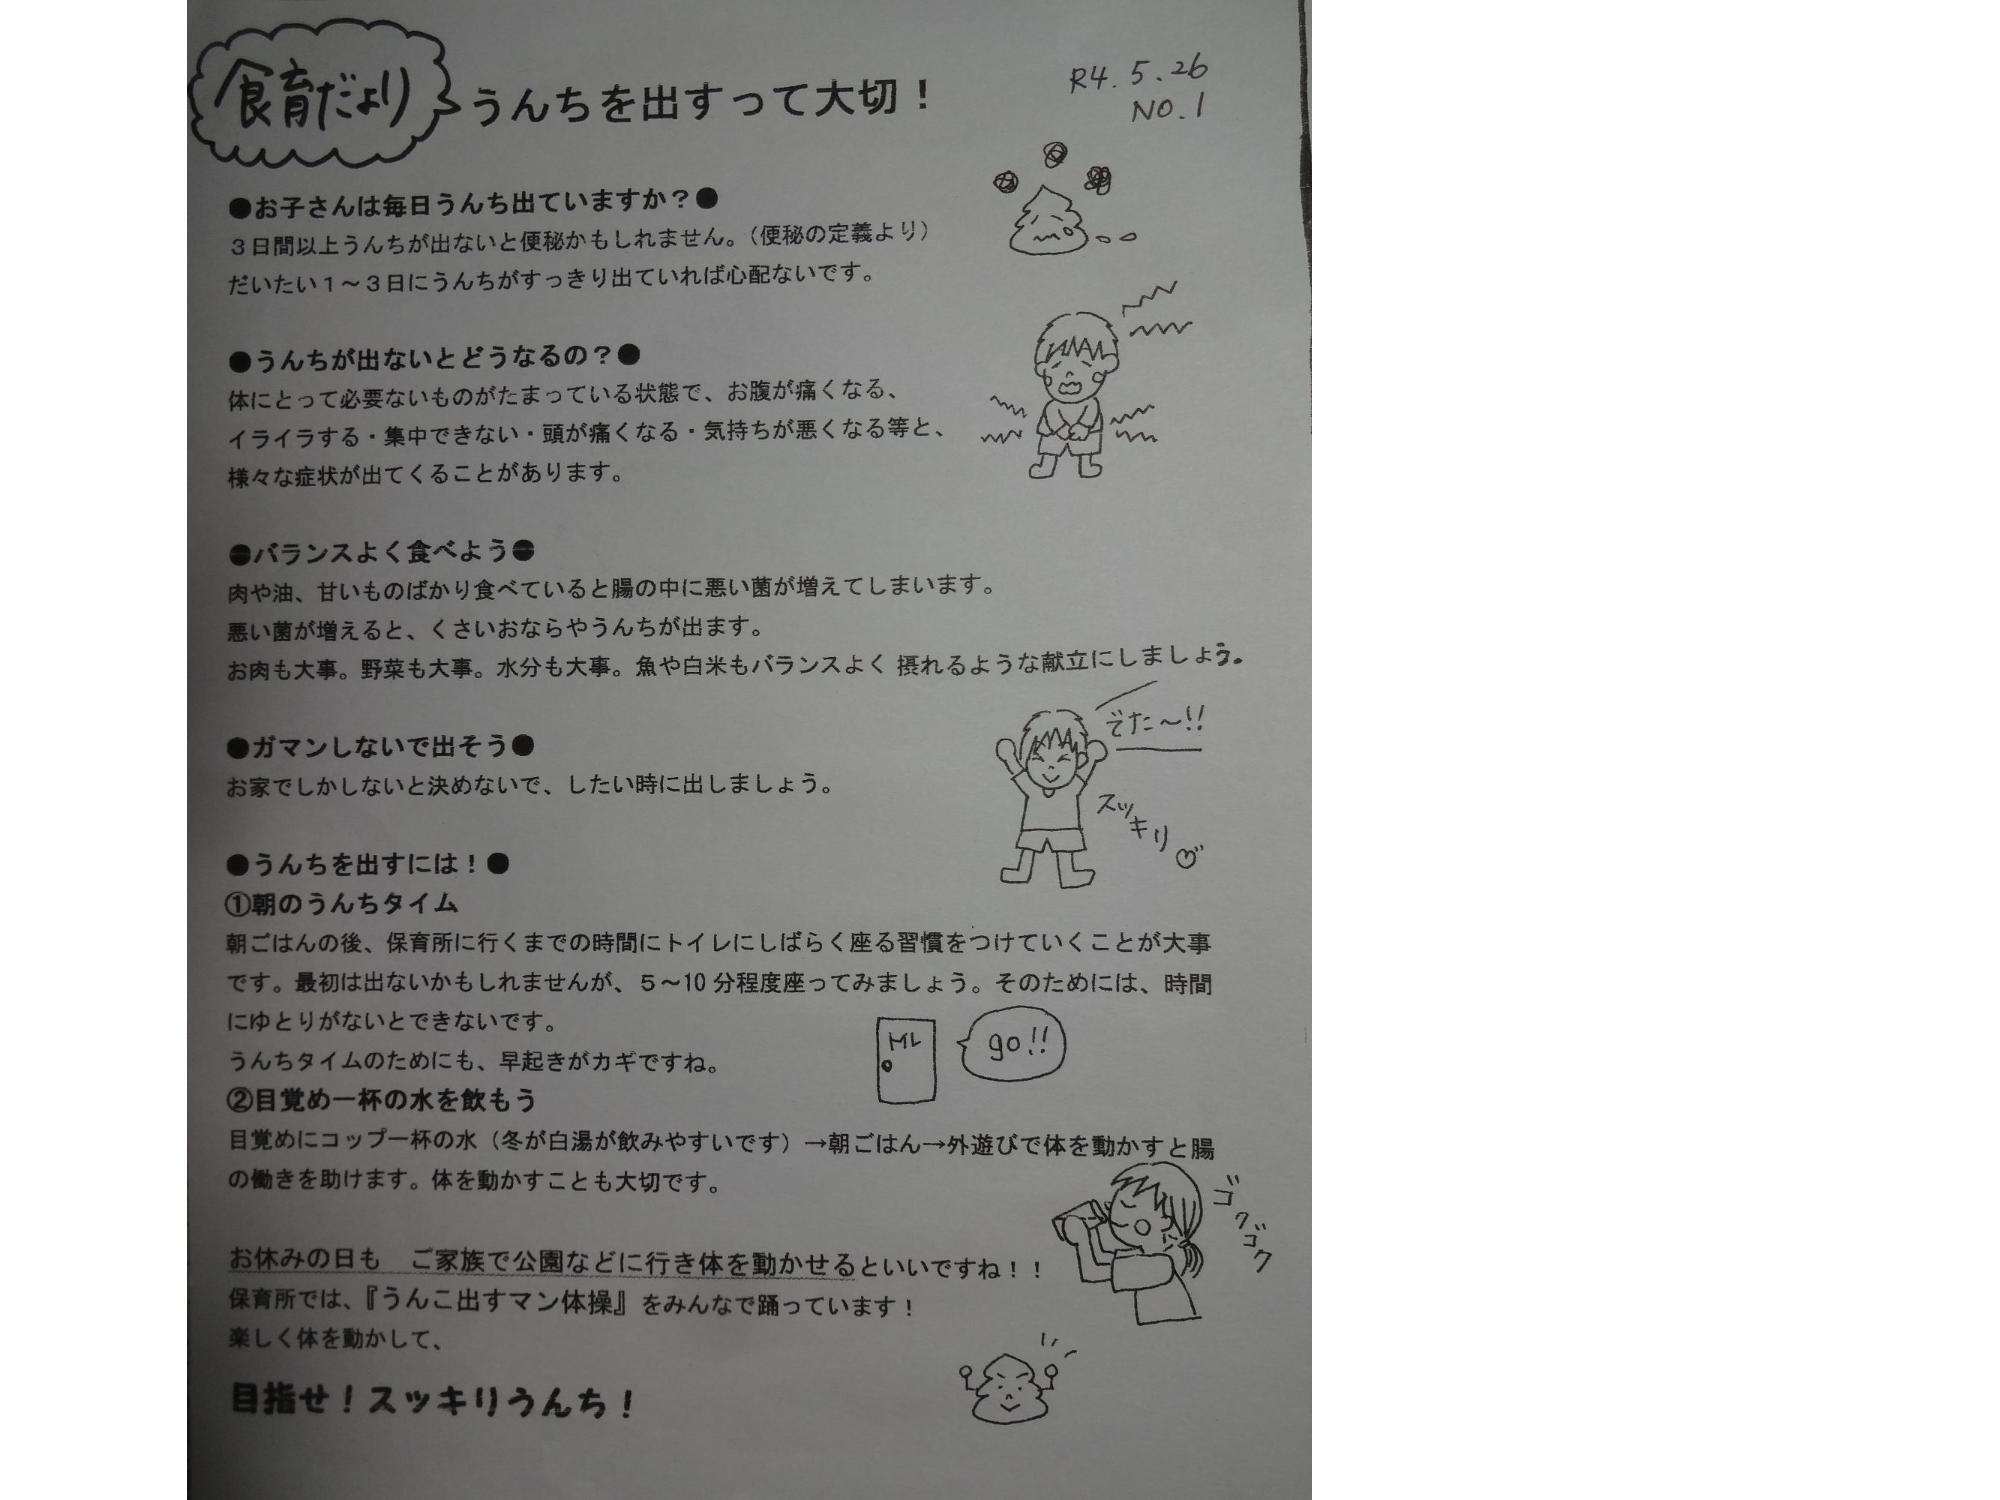 食育だより
うんちを出すって大切！
R4.5.26
NO.1
●お子さんは毎日うんち出ていますか？●
３日間以上うんちが出ないと便秘かもしれません。（便秘の定義より）
だいたい１～３日にうんちがすっきり出ていれば心配ないです。
●うんちが出ないとどうなるの？●
体にとって必要ないものがたまっている状態で、お腹が痛くなる、
イライラする・集中できない・頭が痛くなる・気持ちが悪くなる等と、
様々な症状が出てくることがあります。
●バランスよく食べよう●
肉や油、甘いものばかり食べていると腸の中に悪い菌が増えてしまいます。
悪い菌が増えると、くさいおならやうんちが出ます。
お肉も大事。野菜も大事。水分も大事。魚や白米もバランスよく摂れるような献立にしましょう。
でた～!!
スッキリ♡
●ガマンしないで出そう●
お家でしかしないと決めないで、したい時に出しましょう。
●うんちを出すには！●
①朝のうんちタイム
朝ごはんの後、保育所に行くまでの時間にトイレにしばらく座る習慣をつけていくことが大事
です。最初は出ないかもしれませんが、５～10 分程度座ってみましょう。そのためには、時間
にゆとりがないとできないです。
うんちタイムのためにも、早起きがカギですね。
トイレ
go!!
②目覚め一杯の水を飲もう
目覚めにコップ一杯の水（冬が白湯が飲みやすいです）→朝ごはん→外遊びで体を動かすと腸
の働きを助けます。体を動かすことも大切です。
ゴクゴク
お休みの日も　ご家族で公園などに行き体を動かせるといいですね！！
保育所では、『うんこ出すマン体操』をみんなで踊っています！
楽しく体を動かして、
目指せ！スッキリうんち！